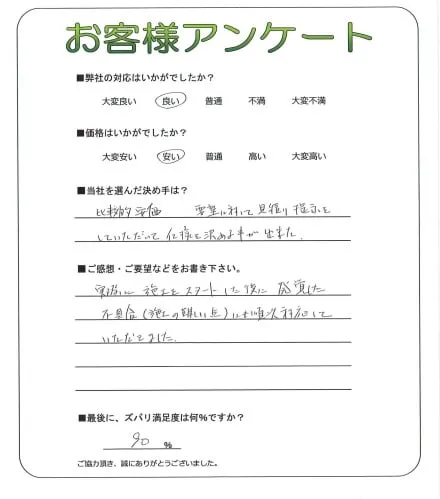 お客様アンケート
■弊社の対応はいかがでしたか?
大変良い 良い 普通 不満 大変不満
■価格はいかがでしたか?
大変安い 安い 普通 高い 大変高い
■当社を選んだ決め手は?
比較的安価 要望に対して見積り提示を
していただいて仕様を決める事が出来た。
■ご感想・ご要望などをお書き下さい。
実際に施工をスタートした後に発覚した
不具合(施工の難しい点)にも順次対応して
いただきました。
■最後に、ズバリ満足度は何%ですか?
90 %
ご協力頂き、誠にありがとうございました。